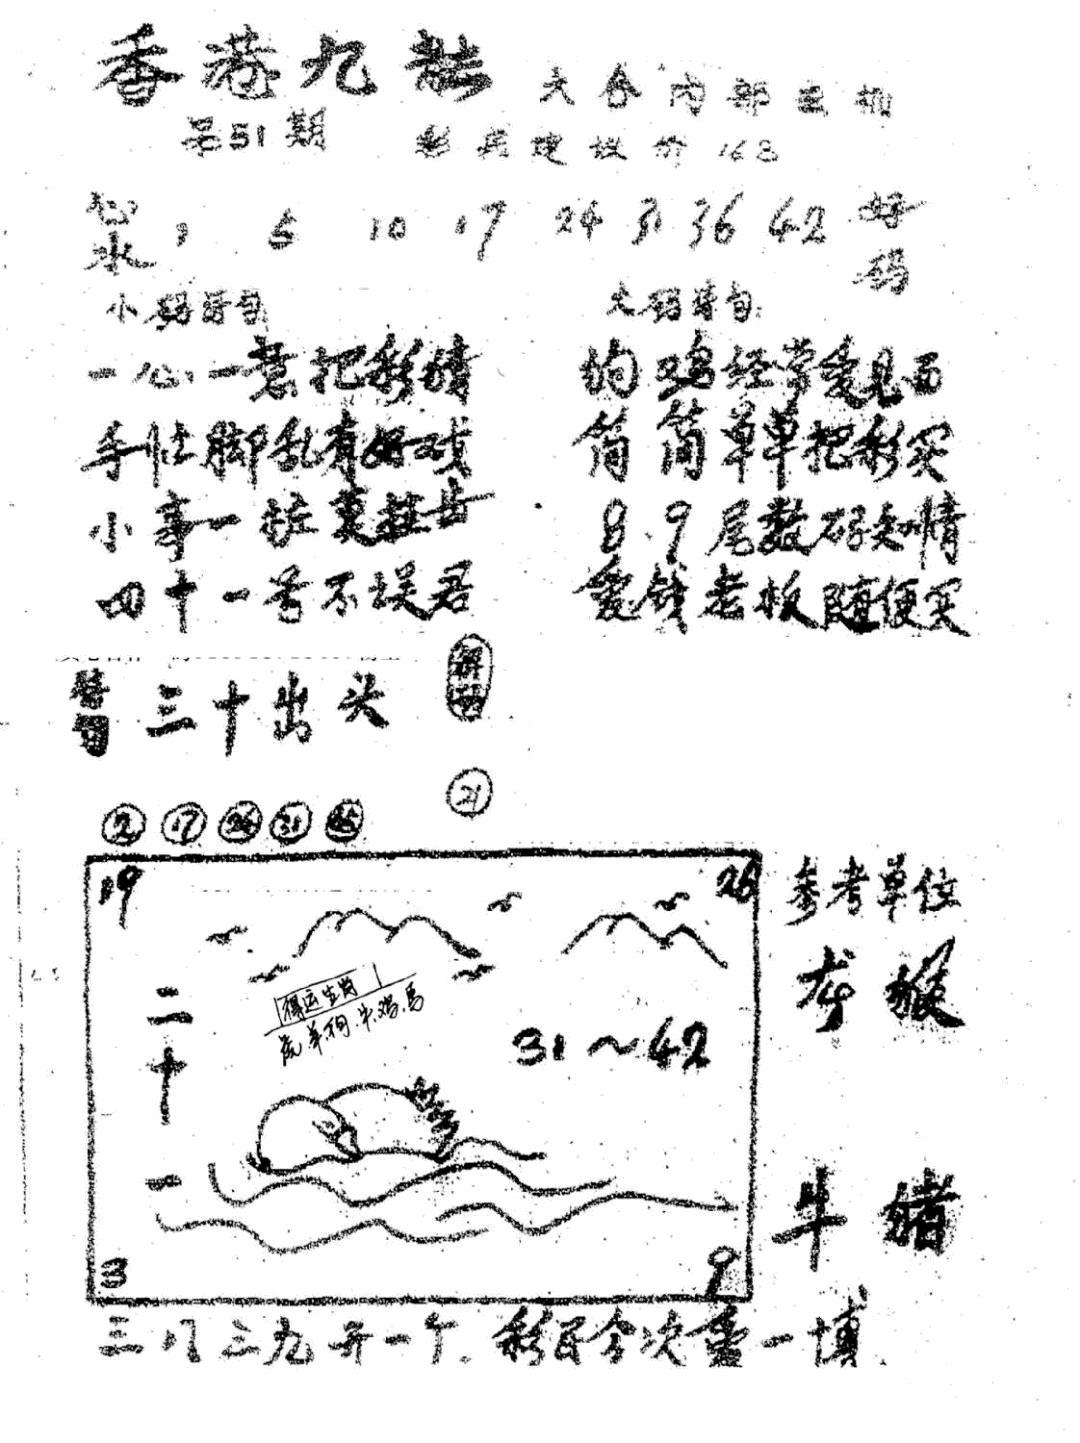 香港九龙 大会内部
第51期 彩民建议价 168
心水 5 10 17 24 31 36 42 好码
小码诗句: 大码诗句:
一心一意把彩猜 约鸡经常爱见面
手忙脚乱有好戏 简简单单把彩买
小事一桩莫挂齿 8.9尾数码知情
四十一号不误君 爱钱老板随便买
三十出头
2 17 26 31 21
19 28
参考单位
龙猴
得运生肖
虎羊狗.牛鸡.马
31~42
二十一
牛猪
3 9
三八三九开一个.彩民今次重一博.